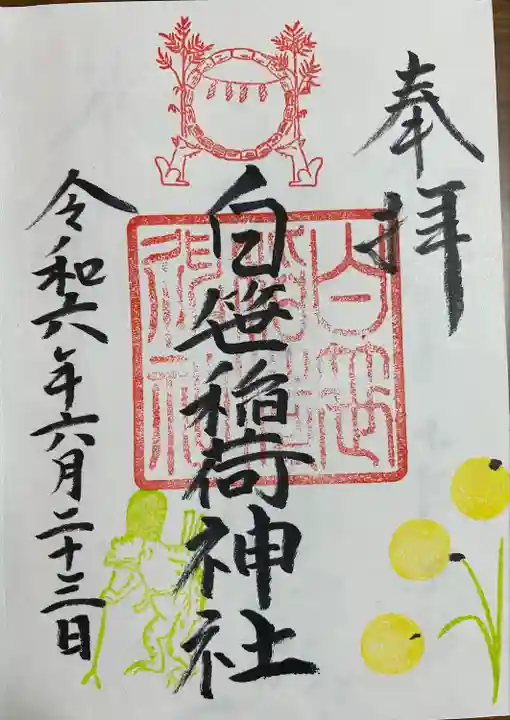 奉拝
白笹稲荷神社
令和六年六月二十三日
白笹稲荷神社